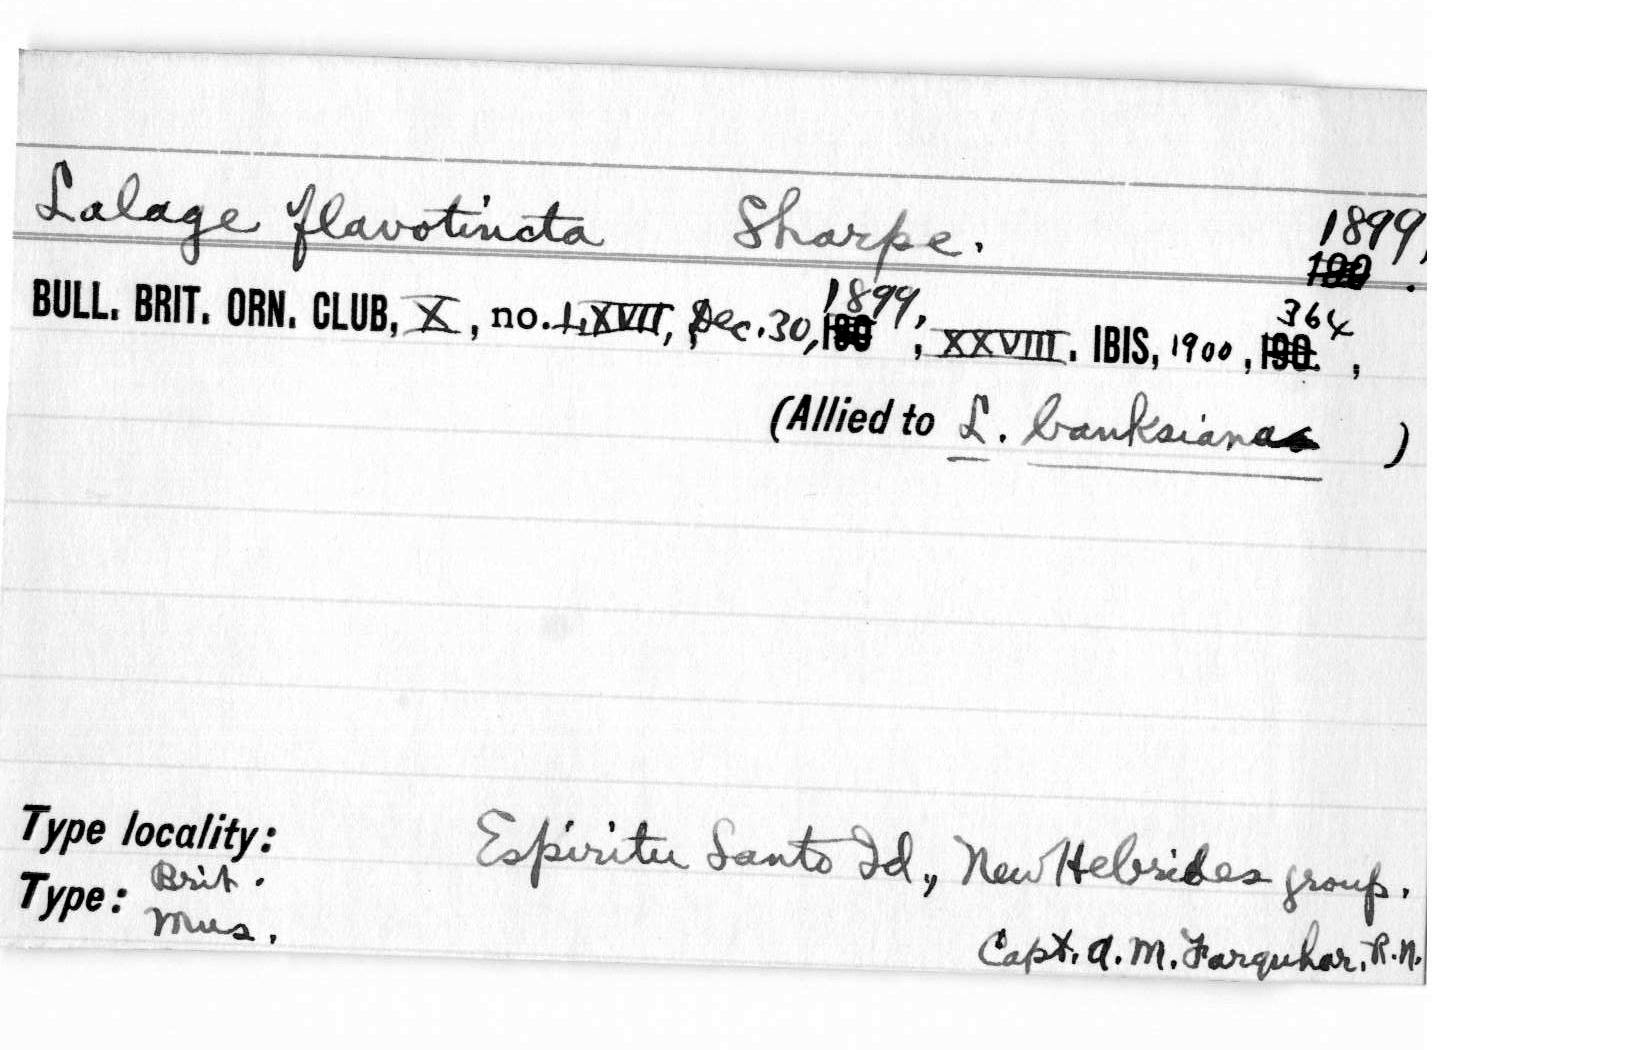 Lalage flavotincta Sharpe. 1899.
BULL. BRIT. ORN. CLUB, X, no. LXXVII, Dec. 30, 1899, XXVIII. IBIS, 1900, 364,
(Allied to L. banksiana )
Type locality: Espiritu Santo Id., New Hebrides group.
Type: Brit. Mus.
Capt. A. M. Farquhar, R. N.